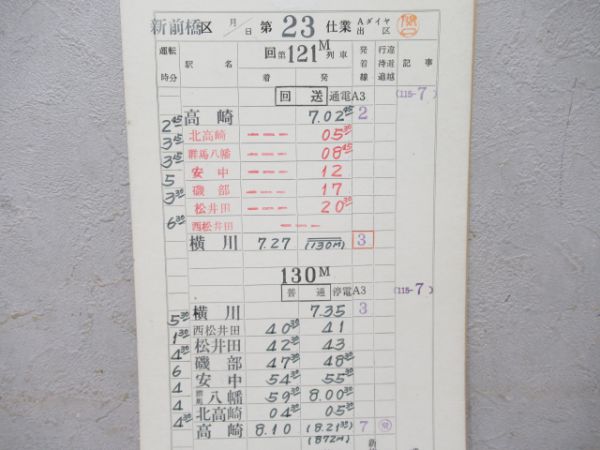 新前橋区 月/日 第23仕業 Aダイヤ出区
運転時分 駅名 回第121M列車 着 発 発着線 行違待避追越 記事
回送 通電A3 (115-7)
高崎 7.02⁴⁵ 2
2⁴⁵
北高崎 --- 05³⁰
3¹⁵
群馬八幡 --- 08⁴⁵
3¹⁵
安中 --- 12
5
磯部 --- 17
3³⁰
松井田 --- 20³⁰
6³⁰
西松井田 ---
横川 7.27 (130M) 3
130M
普通 停電A3 (115-7)
横川 7.35 3
5³⁰
西松井田 40³⁰ 41
1³⁰
松井田 42³⁰ 43
4³⁰
磯部 47³⁰ 48³⁰
6
安中 54³⁰ 55³⁰
4
群馬八幡 59³⁰ 8.00³⁰
4
北高崎 04³⁰ 05³⁰
4³⁰
高崎 8.10 (8.21³⁵) 7
(872M) 新